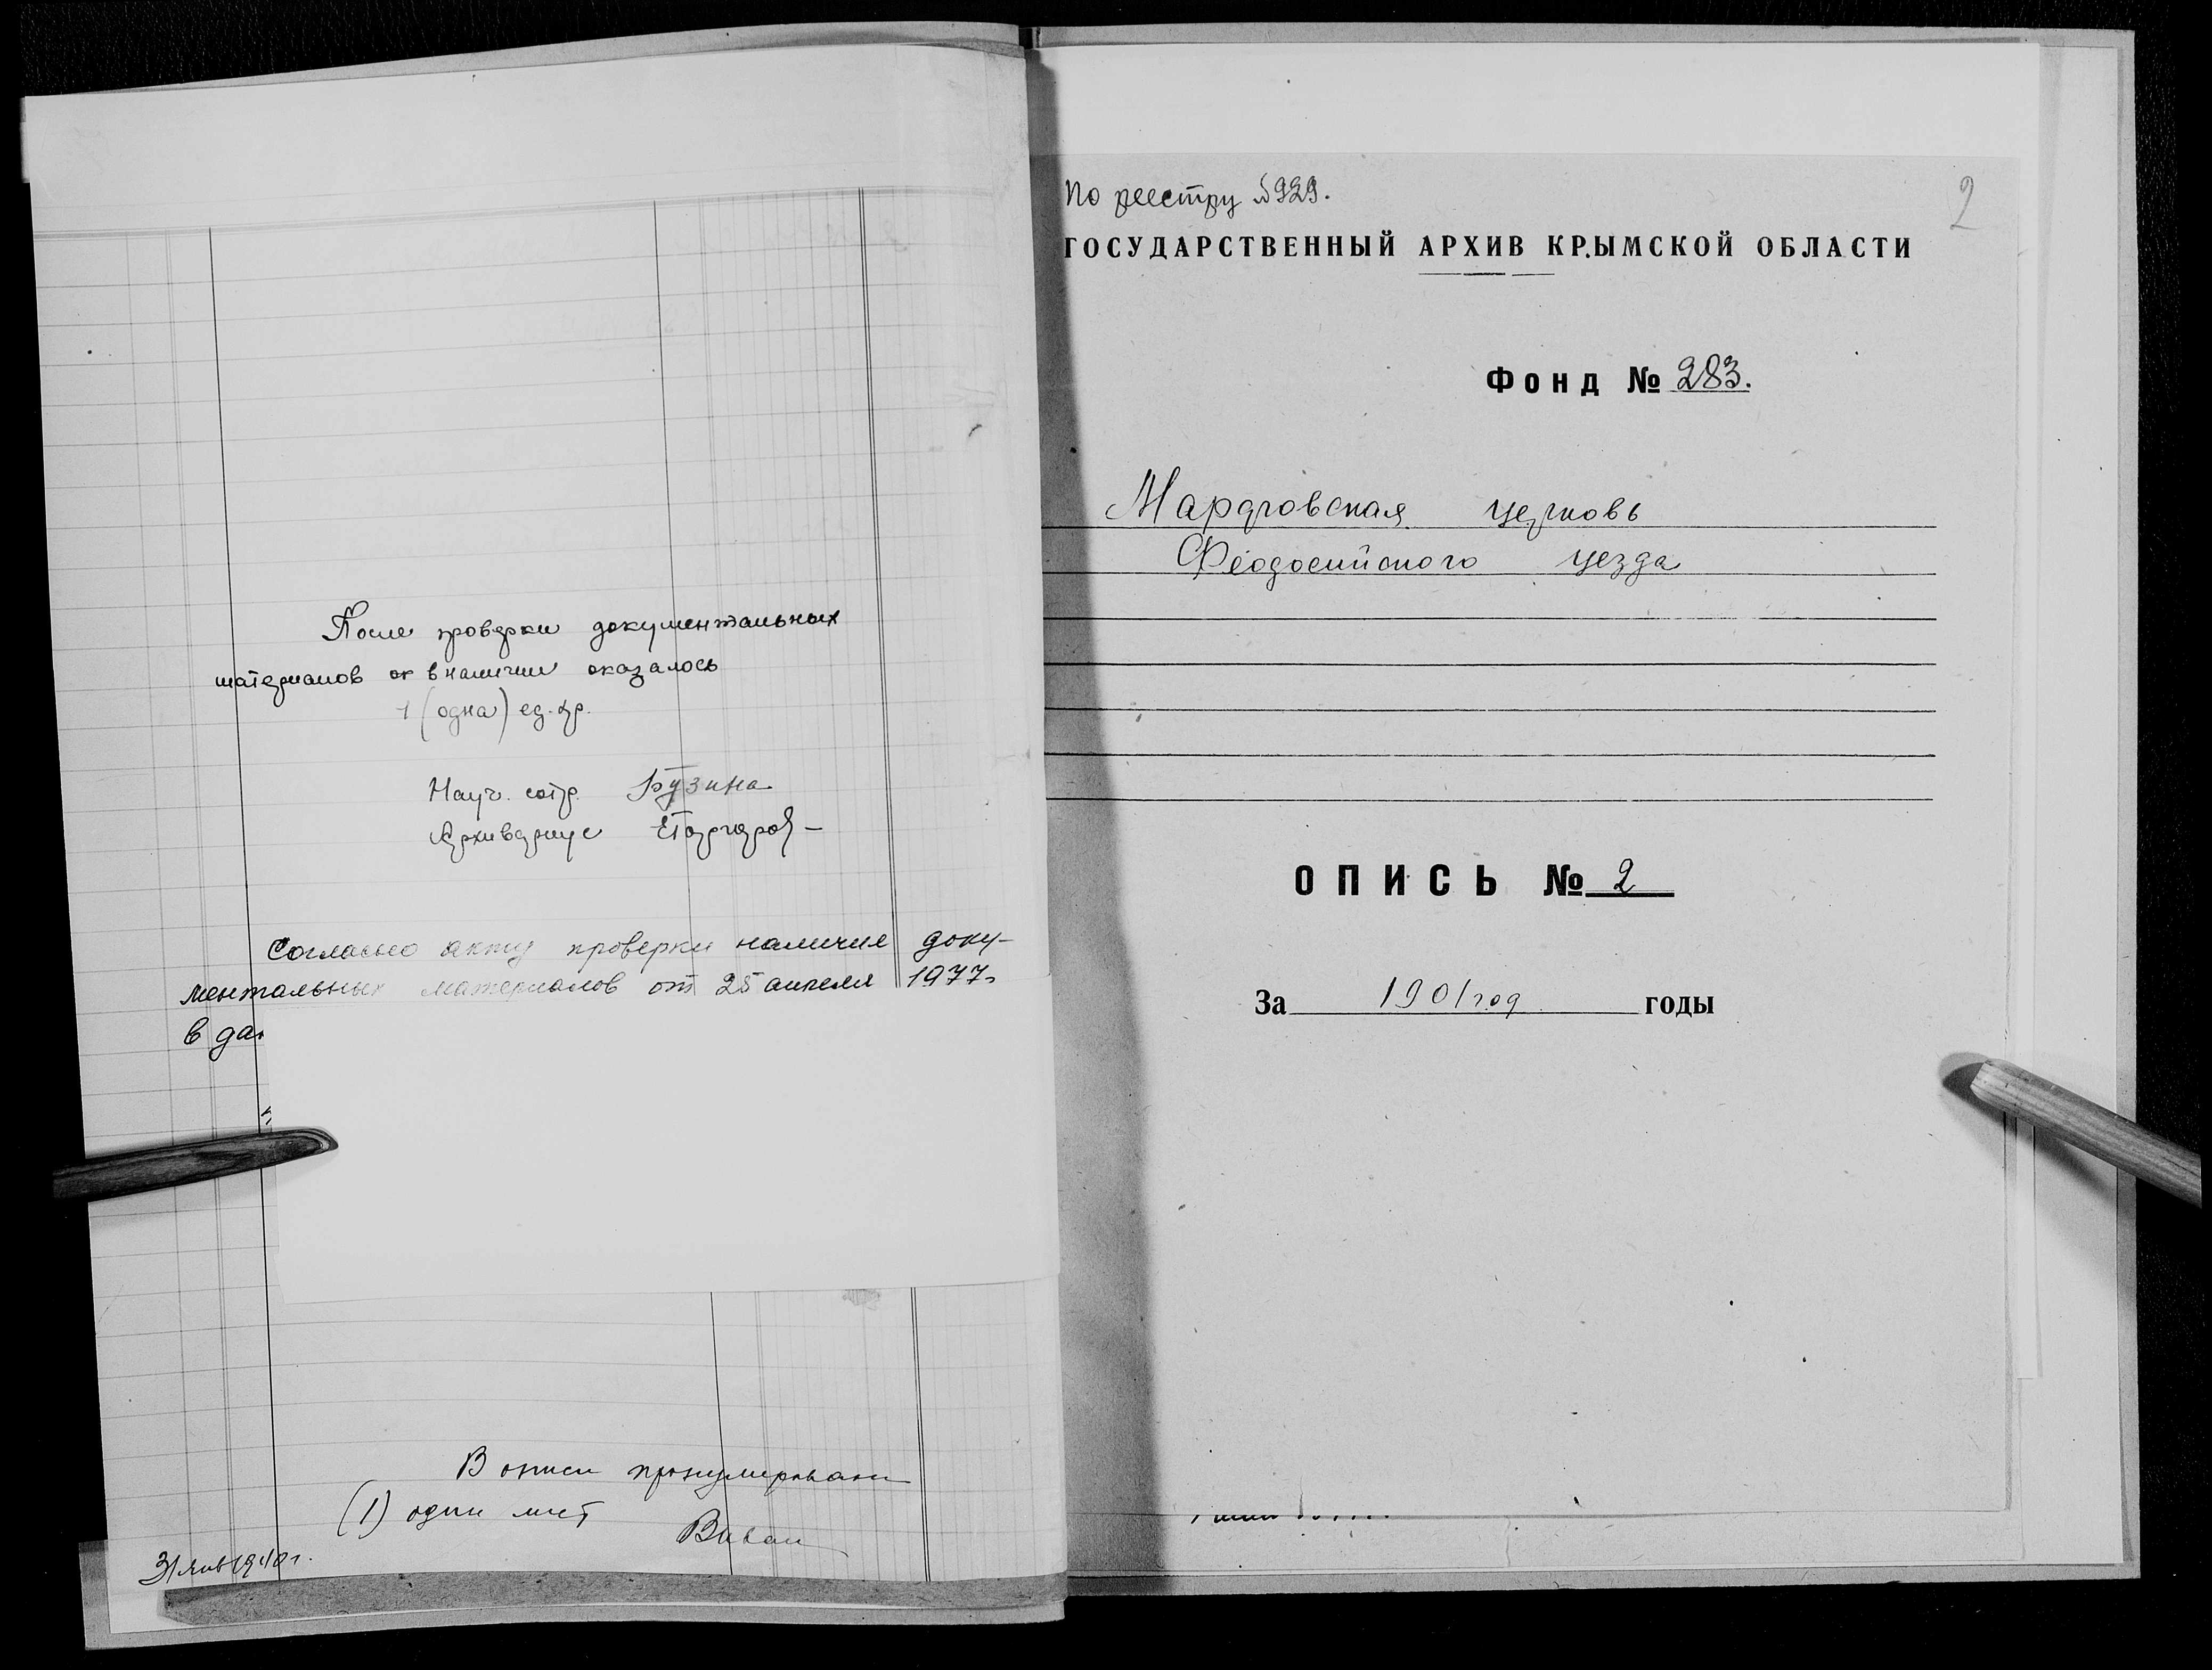 После проверки документальных
материалов в наличии оказалось
1 (одна) ед. хр.
Науч. сотр. Бузина
Архивариус
Согласно акту проверки наличия доку-
ментальных материалов от 25 апреля 1977г.
в дан
В описи пронумерован
(1) один лист
31 янв 1940г.
По реестру №929.
2
ГОСУДАРСТВЕННЫЙ АРХИВ КРЫМСКОЙ ОБЛАСТИ
Фонд № 283.
церковь
Феодосийского уезда
ОПИСЬ № 2
За 1901 год годы